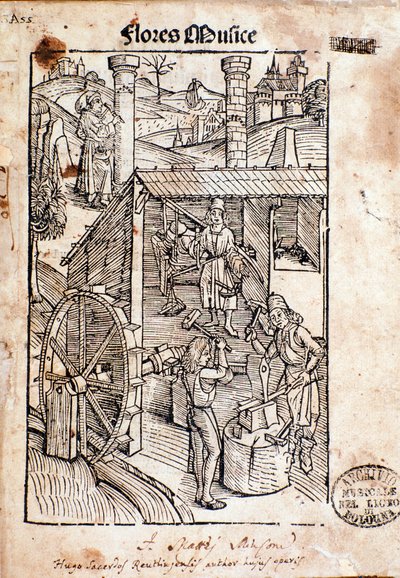 Ass
Flores Musice
ARCHIVIO
MUSICALE
NEL LICEO
DI
BOLOGNA
Hugo Sacerdos Reutlingensis author hujus operis